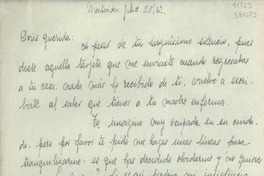 Montevideo, Julio 28/52
Doris querida: A pesar de tu larguísimo silencio, pues
desde aquella tarjeta que me enviaste cuando regresabas
a tu casa, nada más he recibido de ti, vuelvo a escri-
birte al saber que tienes a tu madre enferma.
Te imagino muy ocupada en su cuida-
do, pero por favor te pido me hagas unas líneas para
tranquilizarme: es que has decidido olvidarme y no quieres